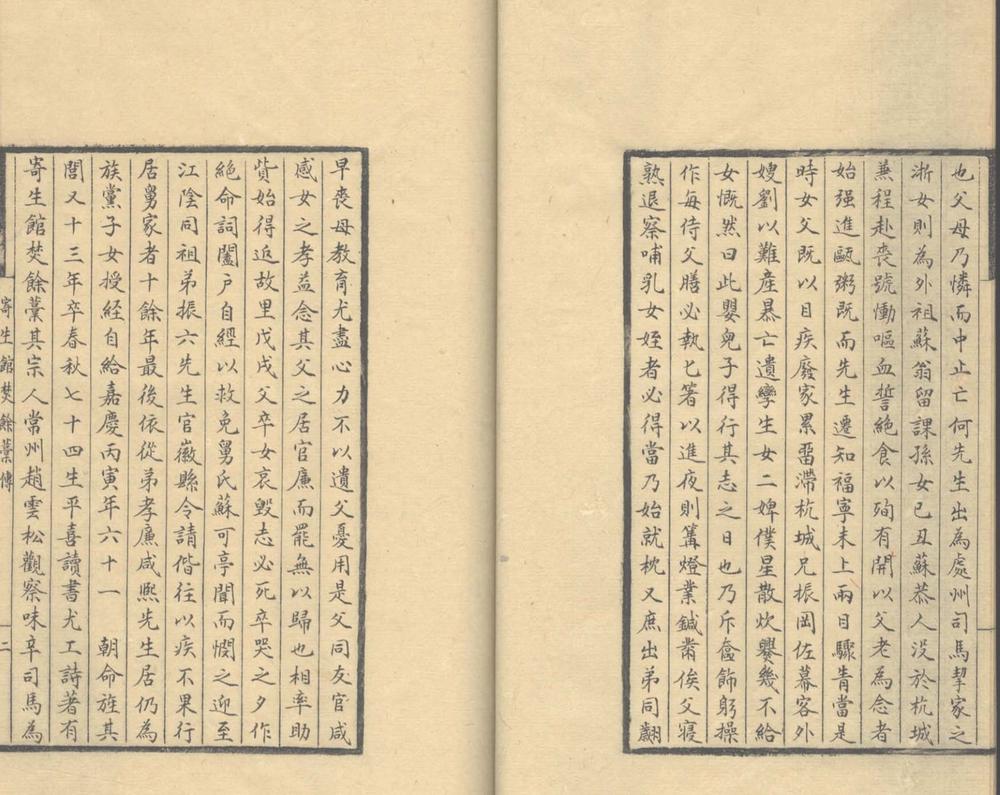 也父母乃憐而中止亡何先生出為處州司馬挈家之
浙女則為外祖蘇翁留課孫女已丑蘇恭人没於杭城
蒹程赴喪號慟嘔血誓絕食以殉有開以父老為念者
始强進甌粥既而先生遷知福寧未上兩目驟眚當是
時女父既以目疾廢家累畱滯杭城兄振岡佐幕客外
嫂劉以難產暴亡遺孿生女二婢僕星散炊爨幾不給
女慨然曰此嬰兒子得行其志之日也乃斥奩飾躬操
作每侍父膳必執匕箸以進夜則篝燈業鍼黹俟父寢
熟退察哺乳女姪者必得當乃始就枕又庶出弟同翽
早喪母教育尤盡心力不以遺父憂用是父同友官咸
感女之孝益念其父之居官廉而罷無以歸也相率助
貲始得返故里戊戌父卒女哀毀志必死卒哭之夕作
絕命詞闔戶自經以救免舅氏蘇可亭聞而憫之迎至
江陰同祖弟振六先生官徽縣令請偕往以疾不果行
居舅家者十餘年最後依從弟孝廉咸熙先生居仍為
族黨子女授經自給嘉慶丙寅年六十一　朝命旌其
閭又十三年卒春秋七十四生平喜讀書尤工詩著有
寄生館焚餘藁其宗人常州趙雲松觀察味辛司馬為
寄生館焚餘藁傳
二